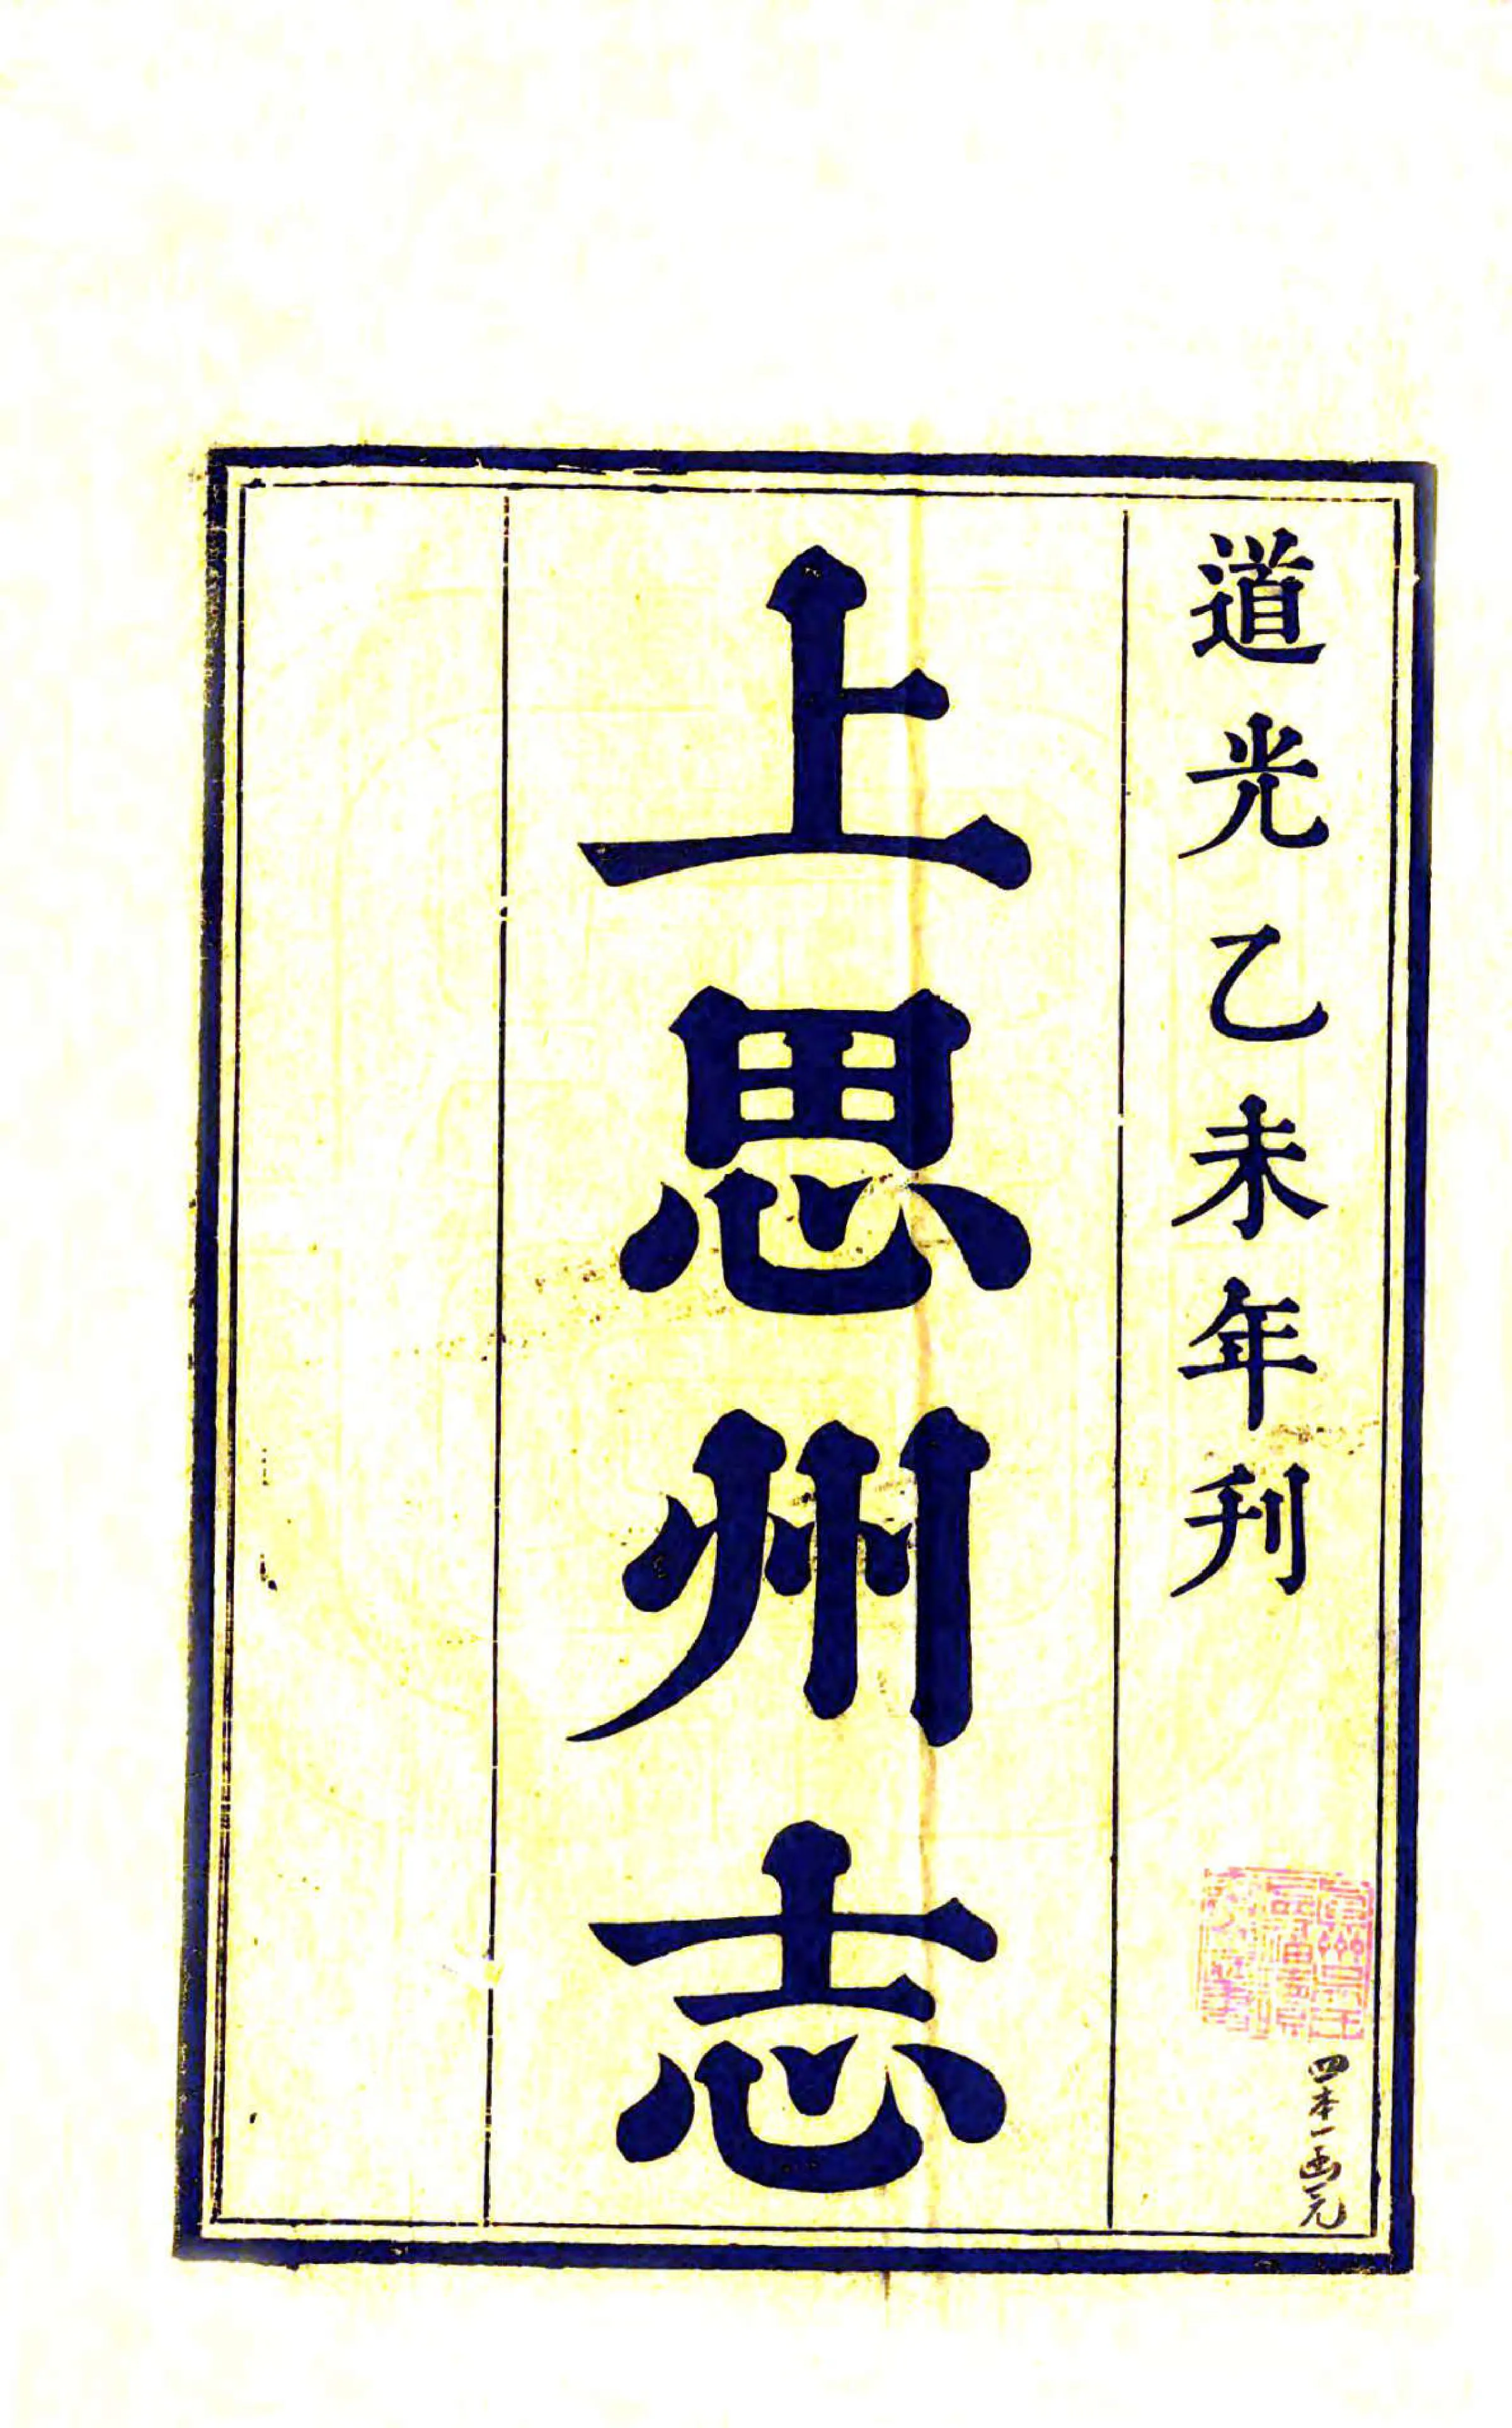 道光乙未年刊
上思州志
四本一函